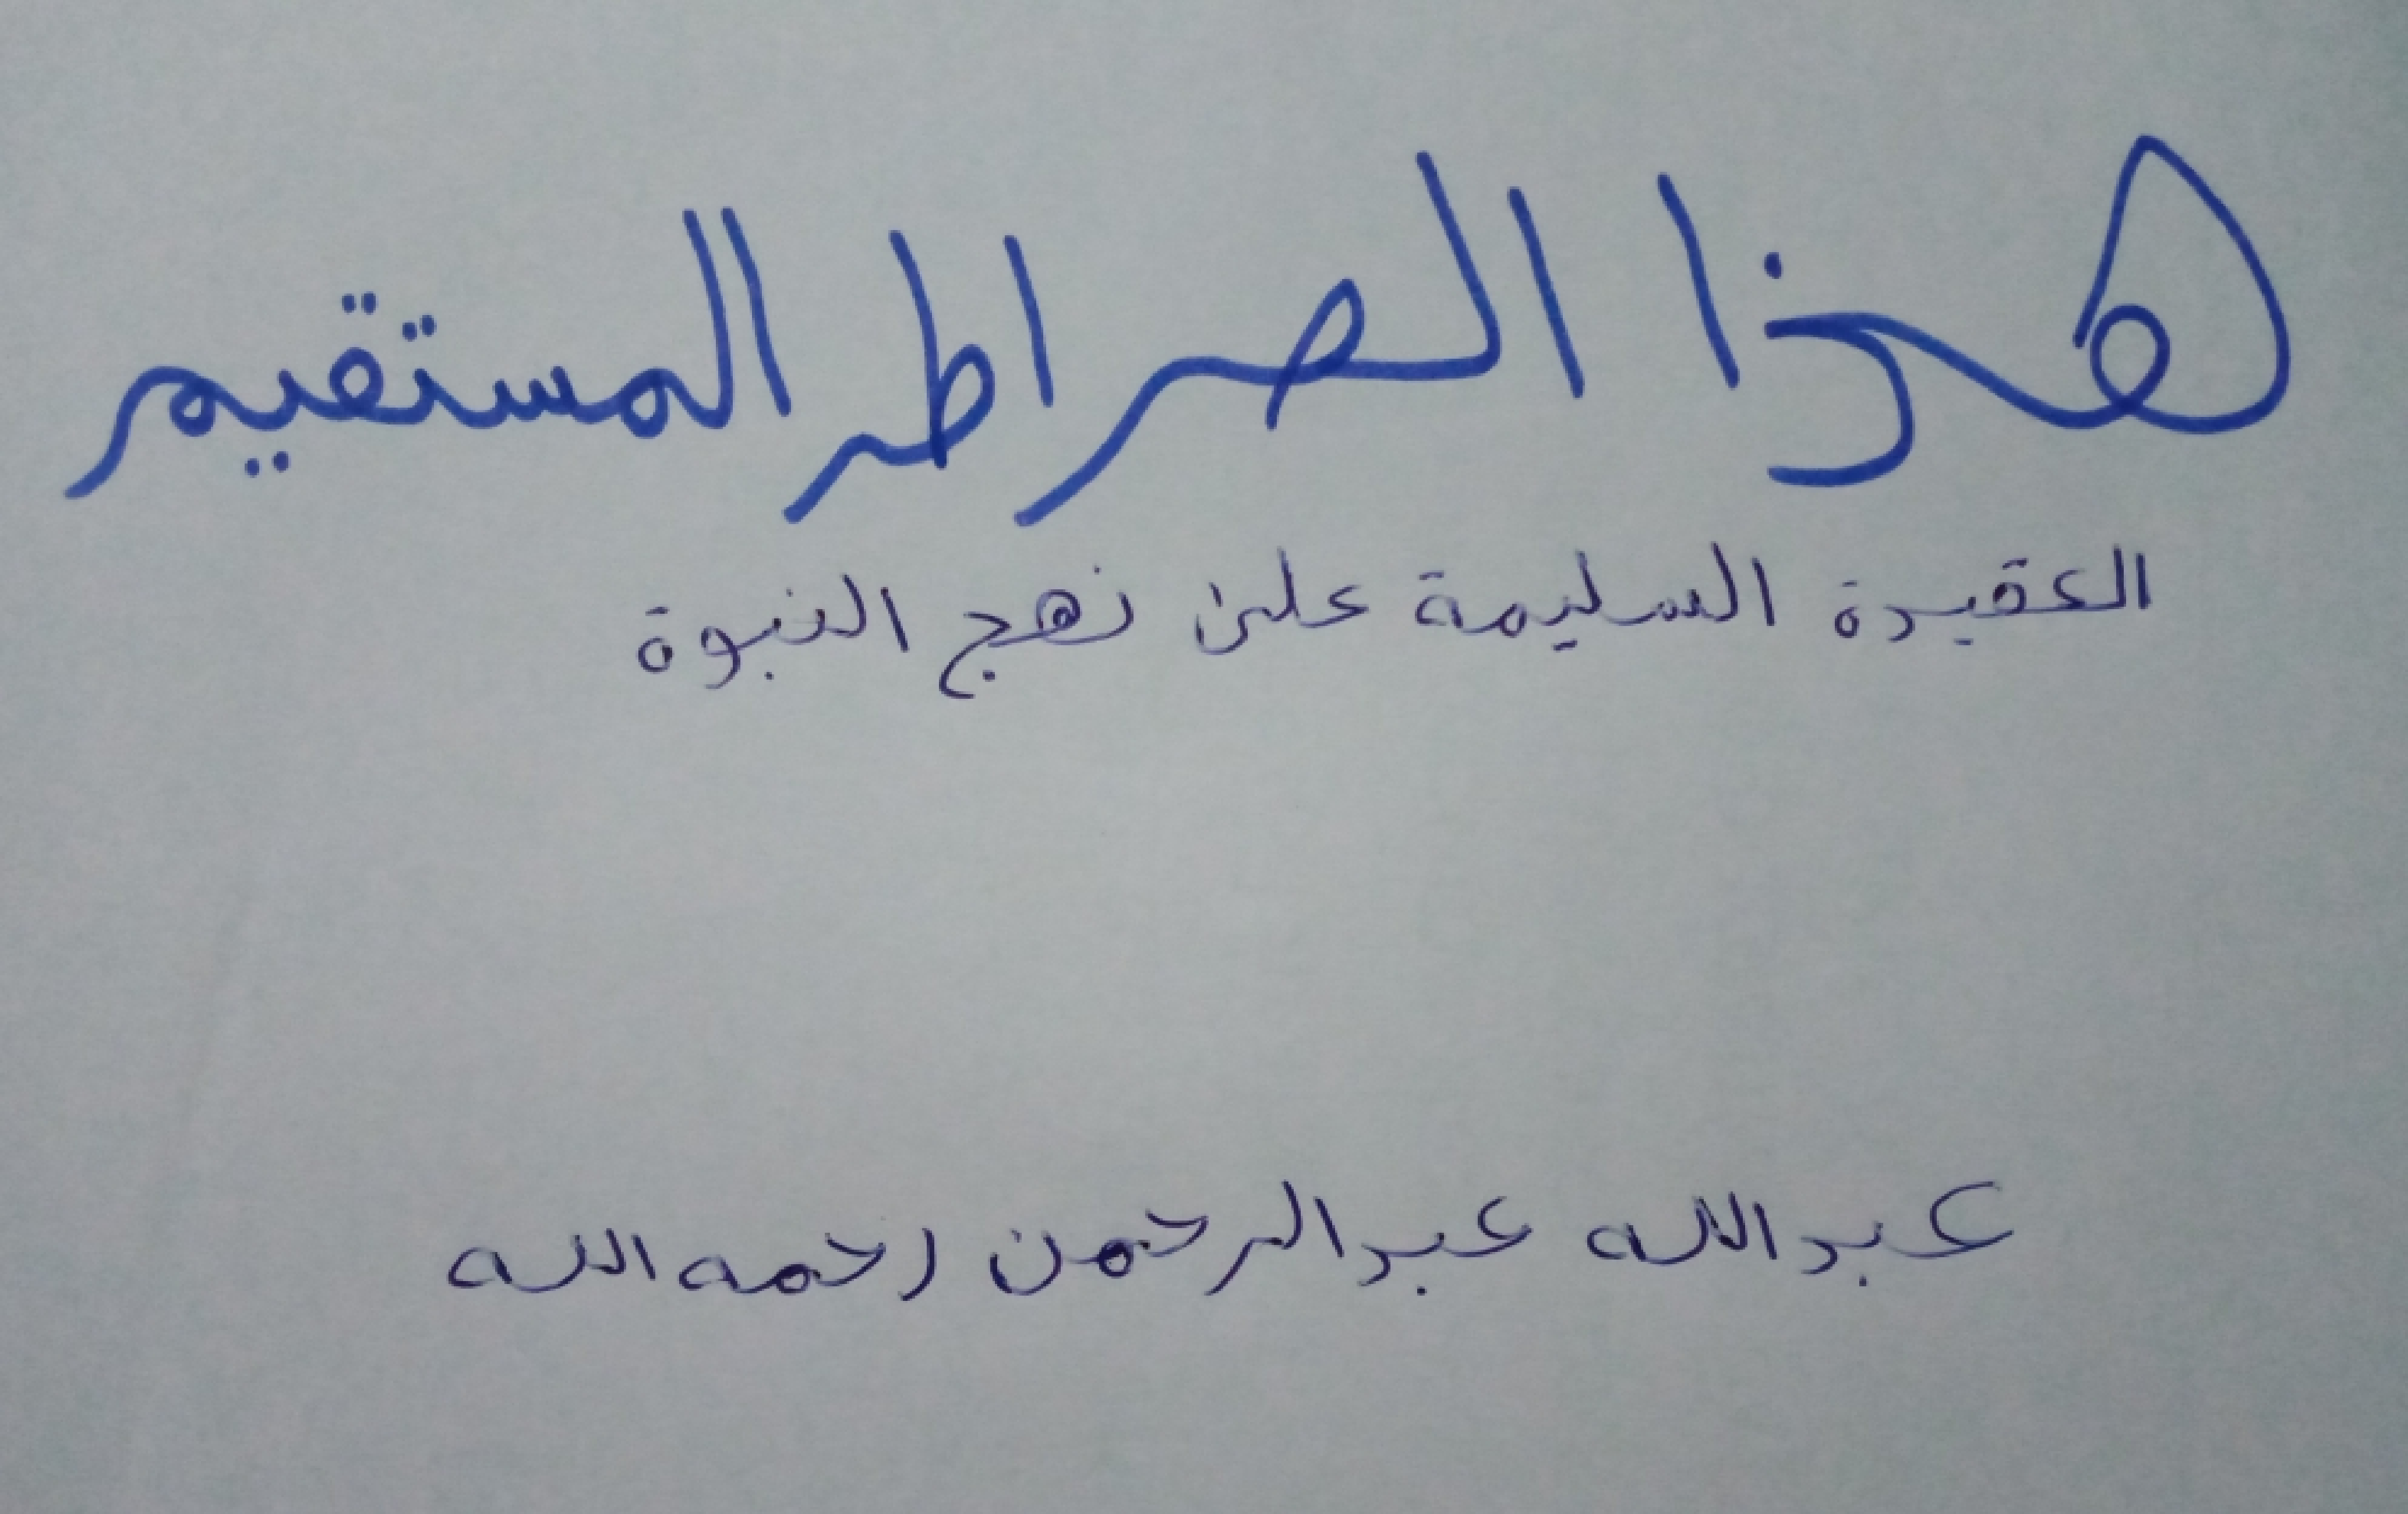 هذا الصراط المستقيم
العقيدة السليمة على نهج النبوة
عبدالله عبدالرحمن رحمه الله